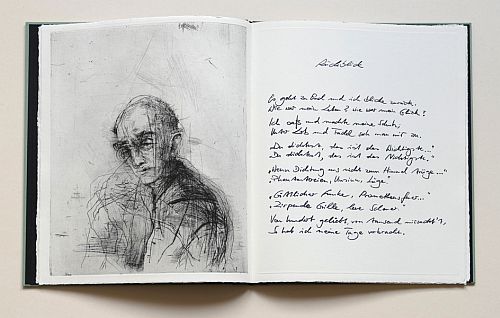 Rückblick
Es geht zu End und ich blicke zurück.
Wie war mein Leben? wie war mein Glück?
Ich saß und machte meine Schuh,
Unter Lob und Tadel sah man mir zu.
„Du dichtest, das ist das Wichtigste..."
„Du dichtest, das ist das Nichtigste."
„Wenn Dichtung uns nicht zum Himmel trüge..."
„Phantastereien, Unsinn, Lüge"
„Göttlicher Funke, Prometheusfeuer..."
„Zirpende Grille, leere Scheuer."
Von hundert geliebt, von tausend missacht't,
So hab ich meine Tage verbracht.